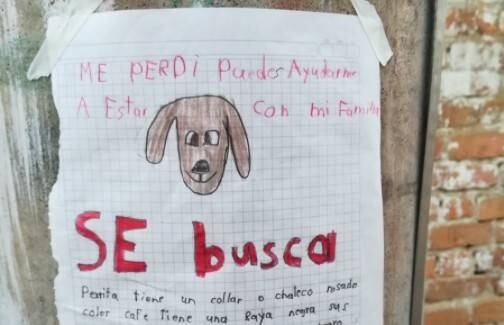 ME PERDI Puedes Ayudarme
A Estar Con mi Familia
SE busca
Perrita tiene un collar o chaleco rosado
color cafe tiene una Raya negra sus